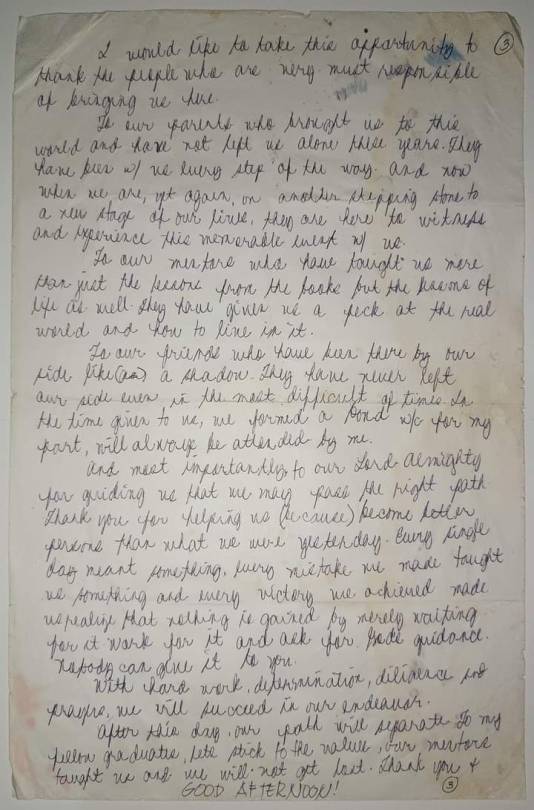 I would like to take this opportunity to ③
thank the people who are very must responsible
of bringing us here.
To our parents who brought us to this
world and have not left us alone these years. They
have been w/ us every step of the way. and now
when we are, yet again, on another stepping stone to
a new stage of our lives, they are here to witness
and experience this memorable event w/ us.
To our mentors who have taught us more
than just the lessons from the books but the lessons of
life as well. They have given us a peek at the real
world and how to live in it.
To our friends who have been there by our
side like (as) a shadow. They have never left
our side even in the most difficult of times. In
the time given to us, we formed a bond w/c for my
part, will always be attended by me.
And most importantly, to our Lord Almighty
for guiding us that we may pass the right path
Thank you for helping us (because) become better
persons than what we were yesterday. Every single
day meant something, every mistake we made taught
us something and every victory we achieved made
us realize that nothing is gained by merely waiting
for it work for it and ask for Gods guidance.
Nobody can give it to you.
With hard work, determination, diligence and
prayers, we will succeed in our endeavor.
After this day, our path will separate To my
fellow graduates, lets stick to the values, our mentors
taught us and we will not get lost. Thank you &
GOOD AFTERNOON! ③